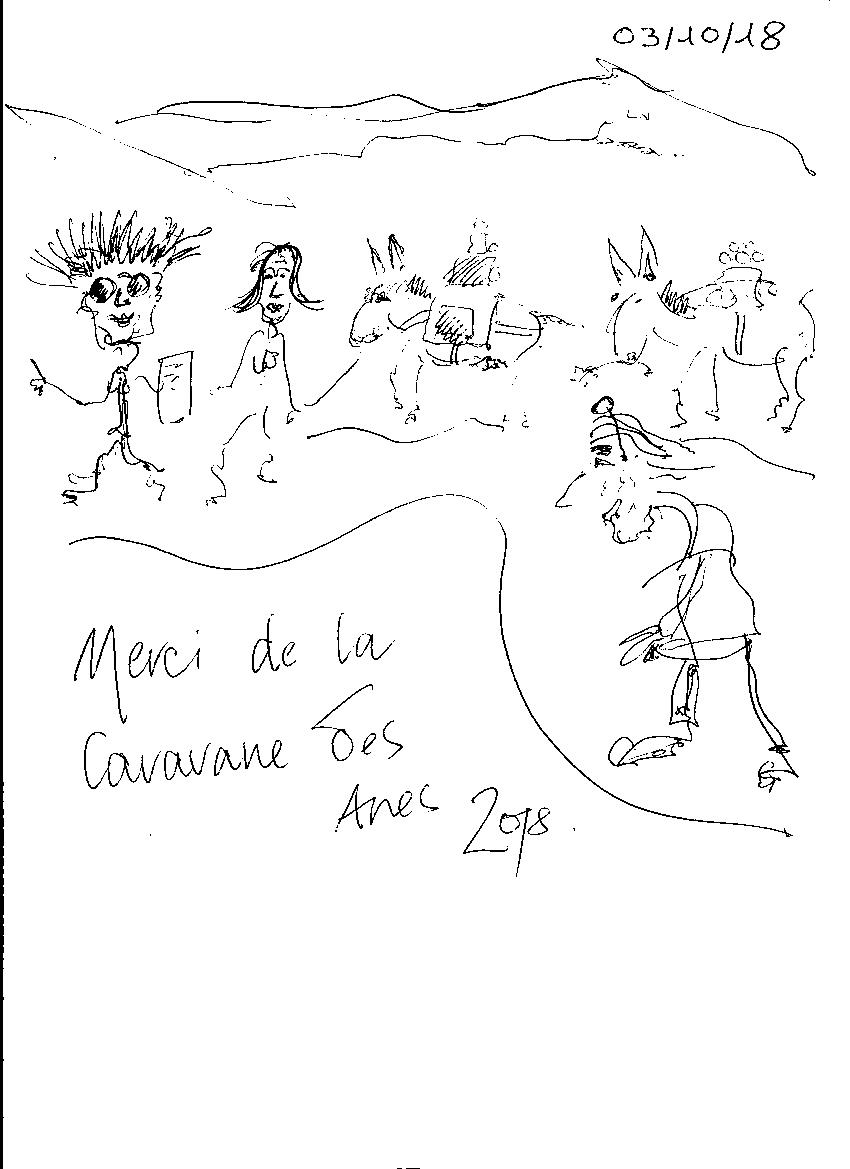 03/10/18
Merci de la
Caravane des
Anes 2018.